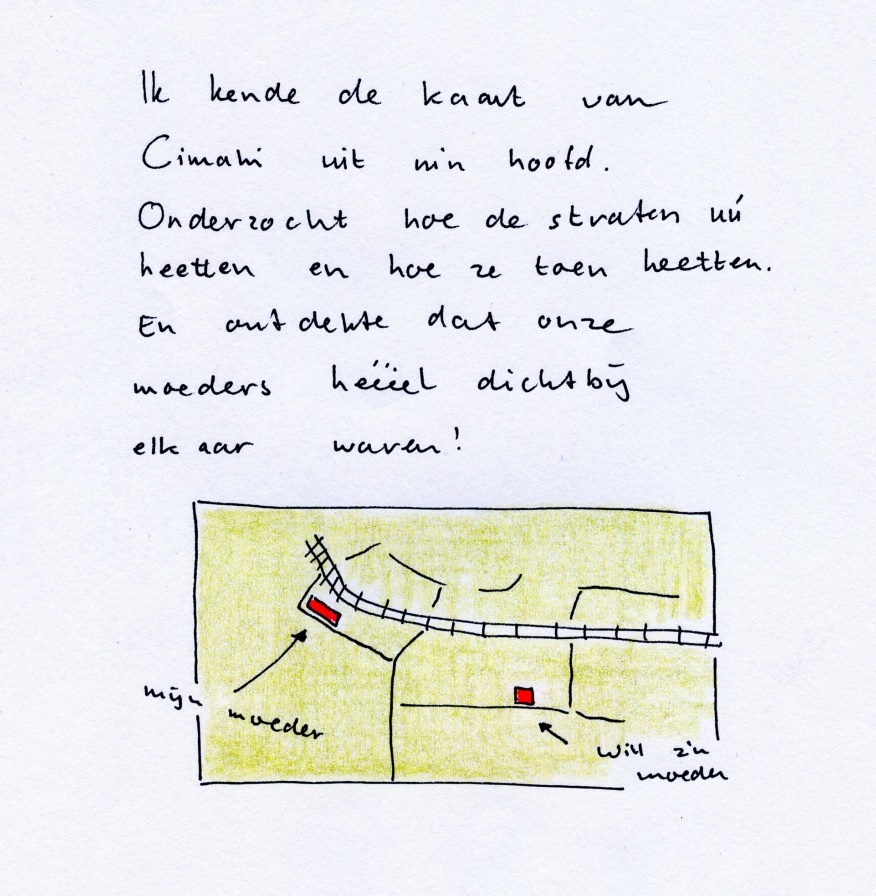 Ik kende de kaart van
Cimahi uit mìn hoofd.
Onderzocht hoe de straten nú
heetten en hoe ze toen heetten.
En ontdekte dat onze
moeders héééél dichtbij
elkaar waren!
mijn
moeder
Will z'n
moeder